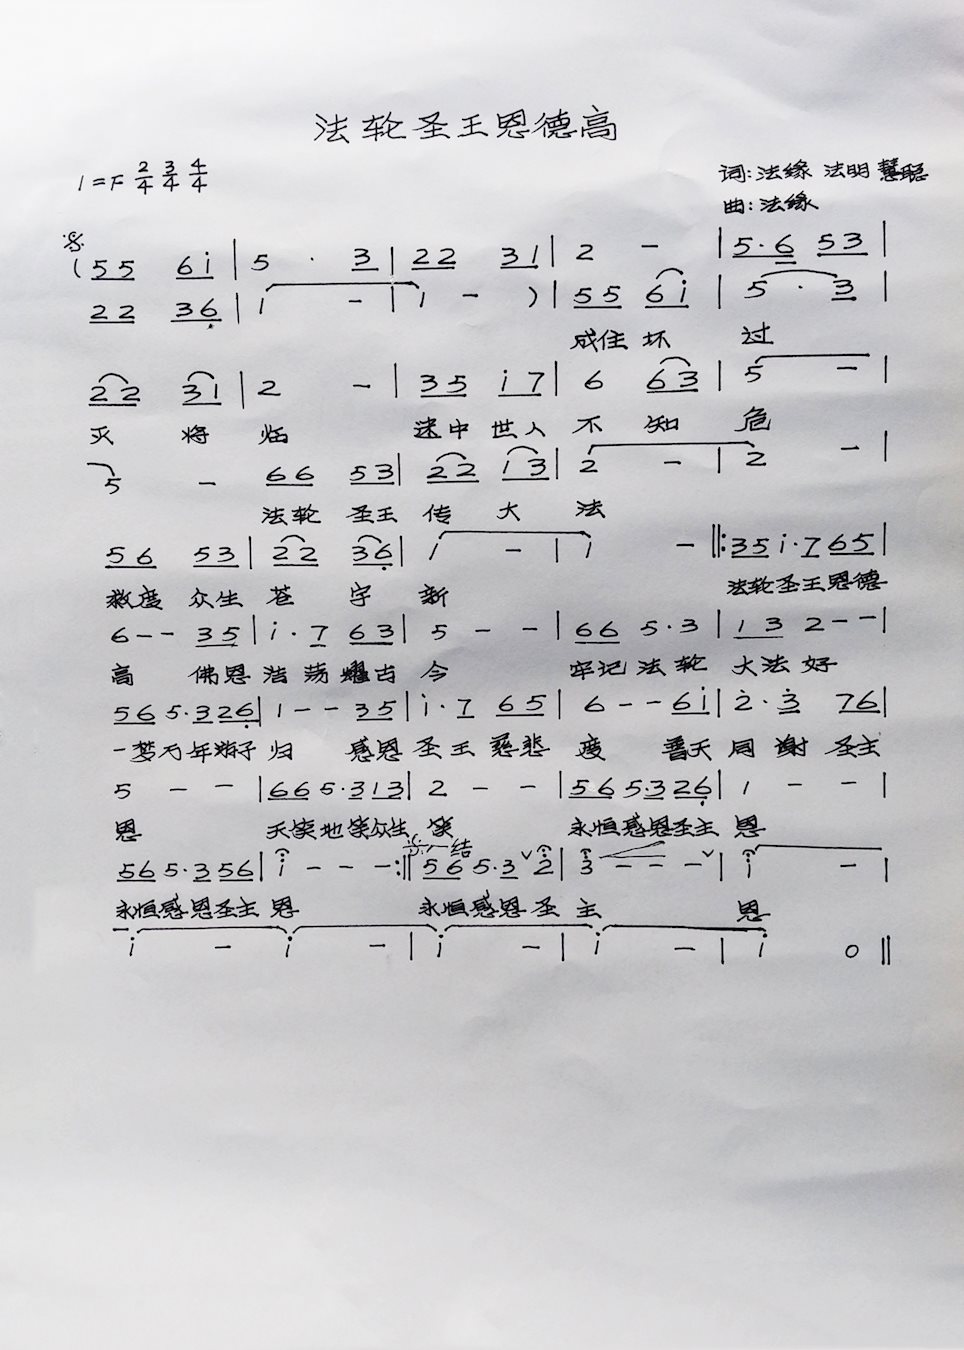 法轮圣王恩德高
1=F 2/4 3/4 4/4
词:法缘 法明 慧聪
曲:法缘
(55 6i | 5 · 3 | 22 31 | 2 - | 5·6 53 |
22 36 | 1 - | 1 - ) | 55 6i | 5 · 3 |
成住 坏 过
22 31 | 2 - | 35 i7 | 6 63 | 5 - |
灭 将 临 迷中 世人 不 知 危
5 - 66 53 | 22 i3 | 2 - | 2 - |
法轮 圣王 传 大 法
56 53 | 22 36 | i - | i - ‖: 35 i·7 65 |
救度 众生 苍 宇 新 法轮圣王恩德
6 - - 35 | i·7 63 | 5 - - | 66 5·3 | 13 2 - - |
高 佛恩 浩荡耀古 今 牢记 法轮 大法 好
56 5·3 26 | 1 - - 35 | i·7 65 | 6 - - 6i | 2·3 76 |
一梦万年游子 归 感恩 圣王 慈悲 度 普天 同谢 圣主
5 - - | 66 5·3 13 | 2 - - | 56 5·3 26 | 1 - - |
恩 天笑地笑众生 笑 永恒感恩圣主 恩
结
56 5·3 56 | i - - - :‖ 56 5·3 ˅ 2 | 3 - - - ˅ | i - |
永恒感恩圣主 恩 永恒感恩 圣 主 恩
i - i - | i - | i - | i 0 ‖